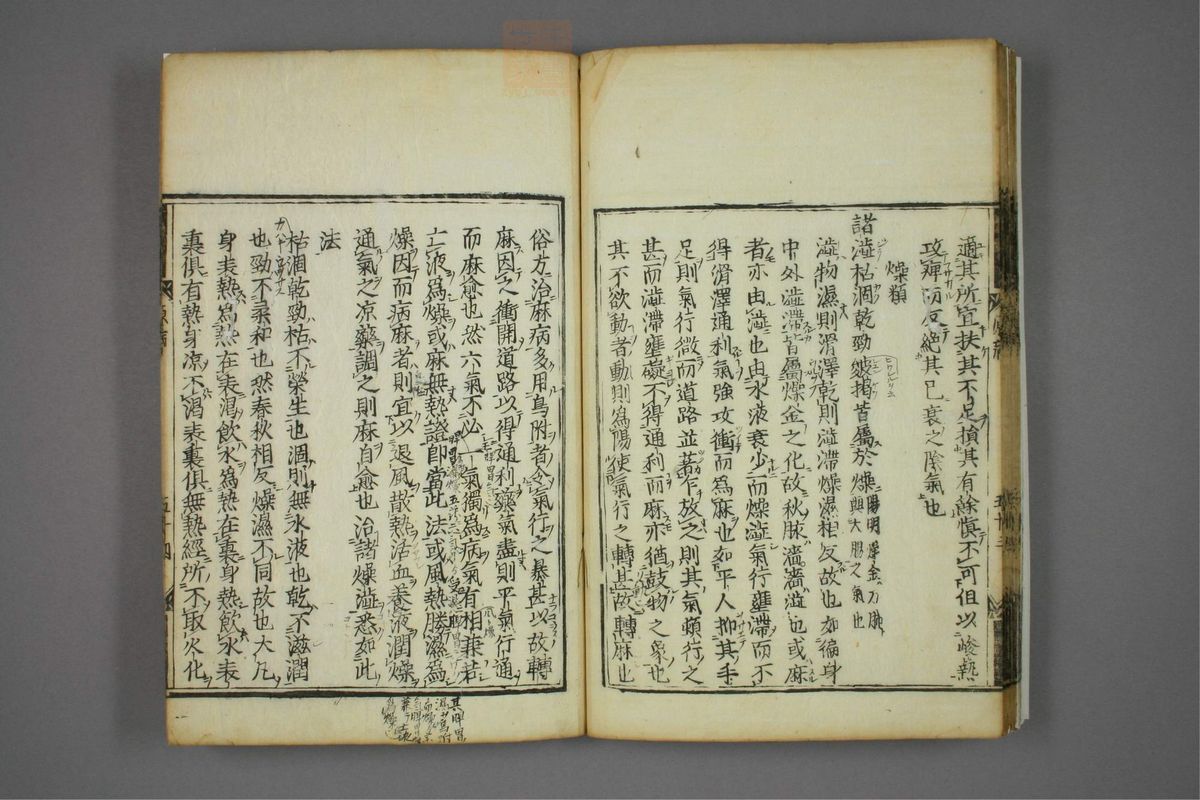 適其所宜扶其不足損其有餘慎不可但以峻熱
攻痺而反絕其已衰之陰氣也
燥類
諸澁枯涸乾勁皴揭皆屬於燥陽明燥金乃肺與大腸之氣也
澁物濕則滑澤乾則澁滯燥濕相反故也如徧身
中外澁滯皆屬燥金之化故秋脉濇濇澁也或麻
者亦由澁也由水液衰少而燥澁氣行壅滯而不
得滑澤通利氣強攻衝而為麻也如平人抑其手
足則氣行微而道路並蓄乍放之則其氣頓行之
甚而澁滯壅礙不得通利而麻亦猶鼓物之象也
其不欲動者動則為陽使氣行之轉甚故轉麻也
俗方治麻病多用烏附者令氣行之暴甚以故轉
麻因之衝開道路以得通利藥氣盡則平氣行通
而麻愈也然六氣不必一氣獨為病氣有相兼若
亡液為燥或麻無熱證即當此法或風熱勝濕為
燥因而病麻者則宜以退風散熱活血養液潤燥
通氣之凉藥調之則麻自愈也治諸燥澁悉如此
法
枯涸乾勁枯不榮生也涸則無水液也乾不滋潤
也勁不柔和也然春秋相反燥濕不同故也大凡
身表熱為熱在表渴飲水為熱在裏身熱飲水表
裏俱有熱身凉不渴表裏俱無熱經所不取火化